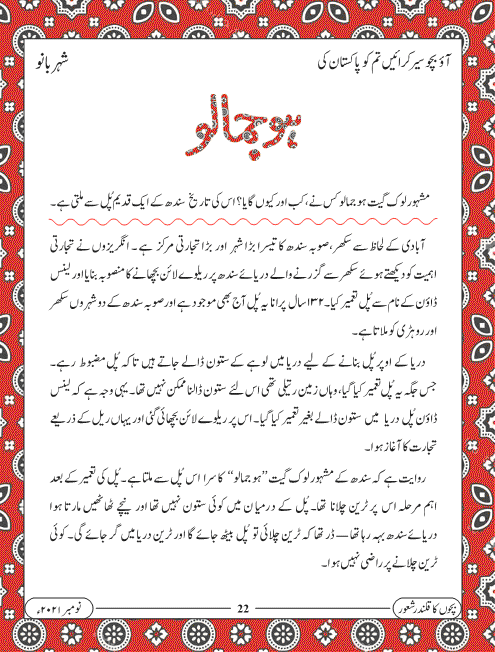 آؤ بچو سیر کرائیں تم کو پاکستان کی
شہر بانو
ہو جمالو
مشہور لوک گیت ہو جمالو کس نے، کب اور کیوں گایا؟ اس کی تاریخ سندھ کے ایک قدیم پُل سے ملتی ہے۔
آبادی کے لحاظ سے سکھر، صوبہ سندھ کا تیسرا بڑا شہر اور بڑا تجارتی مرکز ہے۔ انگریزوں نے تجارتی
اہمیت کو دیکھتے ہوئے سکھر سے گزرنے والے دریائے سندھ پر ریلوے لائن بچھانے کا منصوبہ بنایا اور لینس
ڈاؤن کے نام سے پُل تعمیر کیا۔ ۱۳۲ سال پرانا یہ پُل آج بھی موجود ہے اور صوبہ سندھ کے دو شہروں سکھر
اور روہڑی کو ملاتا ہے۔
دریا کے اوپر پُل بنانے کے لیے دریا میں لوہے کے ستون ڈالے جاتے ہیں تاکہ پُل مضبوط رہے۔
جس جگہ یہ پُل تعمیر کیا گیا، وہاں زمین ریتیلی تھی اس لئے ستون ڈالنا ممکن نہیں تھا۔ یہی وجہ ہے کہ لینس
ڈاؤن پُل دریا میں ستون ڈالے بغیر تعمیر کیا گیا۔ اس پر ریلوے لائن بچھائی گئی اور یہاں ریل کے ذریعے
تجارت کا آغاز ہوا۔
روایت ہے کہ سندھ کے مشہور لوک گیت ”ہو جمالو“ کا سرا اس پُل سے ملتا ہے۔ پُل کی تعمیر کے بعد
اہم مرحلہ اس پر ٹرین چلانا تھا۔ پُل کے درمیان میں کوئی ستون نہیں تھا اور نیچے ٹھاٹھیں مارتا ہوا
دریائے سندھ بہہ رہا تھا — ڈر تھا کہ ٹرین چلائی تو پُل بیٹھ جائے گا اور ٹرین دریا میں گر جائے گی۔ کوئی
ٹرین چلانے پر راضی نہیں ہوا۔
بچوں کا قلندر شعور
22
نومبر ۲۰۲۱ء